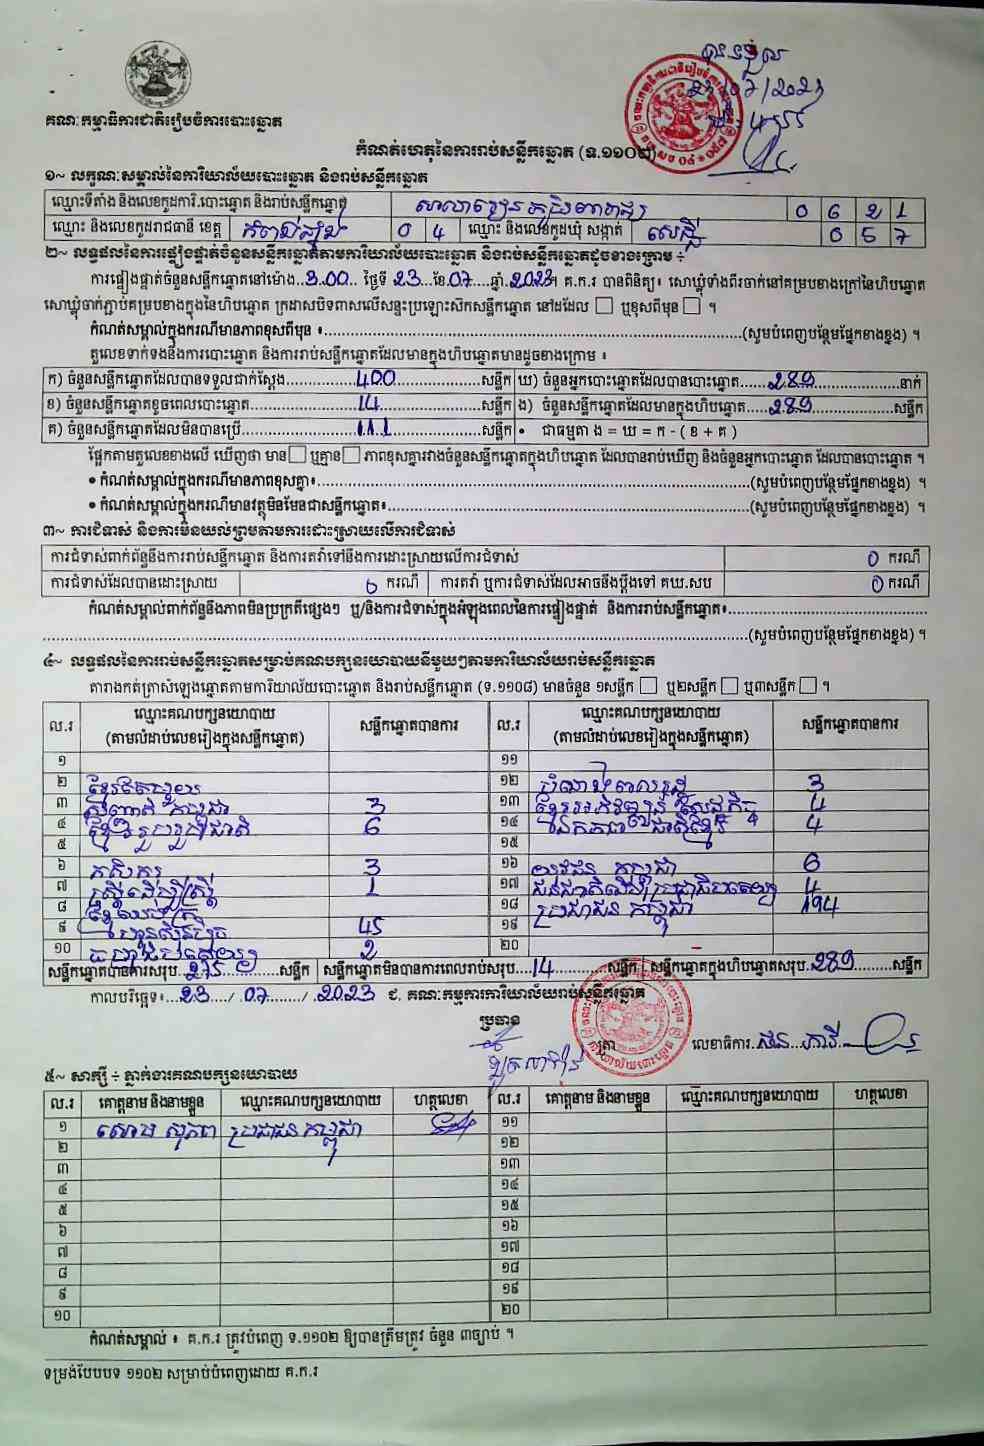 បានទទួល
23/07/2023
គណៈកម្មាធិការជាតិរៀបចំការបោះឆ្នោត
កំណត់ហេតុនៃការរាប់សន្លឹកឆ្នោត (ទ.១១០២)
១~ លក្ខណៈសម្គាល់នៃការិយាល័យបោះឆ្នោត និងរាប់សន្លឹកឆ្នោត
ឈ្មោះទីតាំង និងលេខកូដការិ.បោះឆ្នោត និងរាប់សន្លឹកឆ្នោត សាលារៀន 0 6 2 1
ឈ្មោះ និងលេខកូដរាជធានី ខេត្ត កំពង់ឆ្នាំង 0 4 ឈ្មោះ និងលេខកូដឃុំ សង្កាត់ សេដ្ឋី 0 5 7
២~ លទ្ធផលនៃការផ្ទៀងផ្ទាត់ចំនួនសន្លឹកឆ្នោតតាមការិយាល័យបោះឆ្នោត និងរាប់សន្លឹកឆ្នោតដូចខាងក្រោម ÷
ការផ្ទៀងផ្ទាត់ចំនួនសន្លឹកឆ្នោតនៅម៉ោង..3.00.. ថ្ងៃទី 23..ខែ.07....ឆ្នាំ..2023។ គ.ក.រ បានពិនិត្យ៖ សោឃ្លុំទាំងពីរចាក់នៅគម្របខាងក្រៅនៃហិបឆ្នោត
សោឃ្លុំចាក់ភ្ជាប់គម្របខាងក្នុងនៃហិបឆ្នោត ក្រដាសបិទពាសលើសន្ទះប្រឡោះសិកសន្លឹកឆ្នោត នៅដដែល □ ឬខុសពីមុន □ ។
កំណត់សម្គាល់ក្នុងករណីមានភាពខុសពីមុន ៖......(សូមបំពេញបន្ថែមផ្នែកខាងខ្នង) ។
តួលេខទាក់ទងនឹងការបោះឆ្នោត និងការរាប់សន្លឹកឆ្នោតដែលមានក្នុងហិបឆ្នោតមានដូចខាងក្រោម ៖
ក) ចំនួនសន្លឹកឆ្នោតដែលបានទទួលជាក់ស្តែង......400......សន្លឹក ឃ) ចំនួនអ្នកបោះឆ្នោតដែលបានបោះឆ្នោត......289......នាក់
ខ) ចំនួនសន្លឹកឆ្នោតខូចពេលបោះឆ្នោត......14......សន្លឹក ង) ចំនួនសន្លឹកឆ្នោតដែលមានក្នុងហិបឆ្នោត......289......សន្លឹក
គ) ចំនួនសន្លឹកឆ្នោតដែលមិនបានប្រើ......111......សន្លឹក • ជាធម្មតា ង = ឃ = ក - ( ខ + គ )
ផ្អែកតាមតួលេខខាងលើ ឃើញថា មាន □ ឬគ្មាន □ ភាពខុសគ្នារវាងចំនួនសន្លឹកឆ្នោតក្នុងហិបឆ្នោត ដែលបានរាប់ឃើញ និងចំនួនអ្នកបោះឆ្នោត ដែលបានបោះឆ្នោត ។
• កំណត់សម្គាល់ក្នុងករណីមានភាពខុសគ្នា៖......(សូមបំពេញបន្ថែមផ្នែកខាងខ្នង) ។
• កំណត់សម្គាល់ក្នុងករណីមានវត្ថុមិនមែនជាសន្លឹកឆ្នោត៖......(សូមបំពេញបន្ថែមផ្នែកខាងខ្នង) ។
៣~ ការជំទាស់ និងការមិនយល់ព្រមតាមការដោះស្រាយលើការជំទាស់
ការជំទាស់ពាក់ព័ន្ធនឹងការរាប់សន្លឹកឆ្នោត និងការតវ៉ាទៅនឹងការដោះស្រាយលើការជំទាស់ 0 ករណី
ការជំទាស់ដែលបានដោះស្រាយ 0 ករណី ការតវ៉ា ឬការជំទាស់ដែលអាចនឹងប្តឹងទៅ គឃ.សប 0 ករណី
កំណត់សម្គាល់ពាក់ព័ន្ធនឹងភាពមិនប្រក្រតីផ្សេងៗ ឬ/និងការជំទាស់ក្នុងអំឡុងពេលនៃការផ្ទៀងផ្ទាត់ និងការរាប់សន្លឹកឆ្នោត៖......
......(សូមបំពេញបន្ថែមផ្នែកខាងខ្នង) ។
៤~ លទ្ធផលនៃការរាប់សន្លឹកឆ្នោតសម្រាប់គណបក្សនយោបាយនីមួយៗតាមការិយាល័យរាប់សន្លឹកឆ្នោត
តារាងកត់ត្រាសំឡេងឆ្នោតតាមការិយាល័យបោះឆ្នោត និងរាប់សន្លឹកឆ្នោត (ទ.១១០៨) មានចំនួន ១សន្លឹក □ ឬ២សន្លឹក □ ឬ៣សន្លឹក □ ។
ល.រ ឈ្មោះគណបក្សនយោបាយ (តាមលំដាប់លេខរៀងក្នុងសន្លឹកឆ្នោត) សន្លឹកឆ្នោតបានការ ល.រ ឈ្មោះគណបក្សនយោបាយ (តាមលំដាប់លេខរៀងក្នុងសន្លឹកឆ្នោត) សន្លឹកឆ្នោតបានការ
១ ១១
២ ខ្មែរតែមួយ ១២ 3
៣ សញ្ជាតិ កម្ពុជា 3 ១៣ ខ្មែរអភិវឌ្ឍន៍ សេដ្ឋកិច្ច 4
៤ ខ្មែររួបរួមជាតិ 6 ១៤ ឯកភាពជាតិខ្មែរ 4
៥ ១៥
៦ កសិករ 3 ១៦ យុវជន កម្ពុជា 6
៧ ស្ត្រីដើម្បីស្ត្រី 1 ១៧ ជនជាតិដើមប្រជាធិបតេយ្យ 4
៨ ខ្មែរឈប់ក្រ ១៨ ប្រជាជន កម្ពុជា 194
៩ ហ្វ៊ុនស៊ិនប៉ិច 45 ១៩
១០ 2 ២០ –
សន្លឹកឆ្នោតបានការសរុប..275......សន្លឹក សន្លឹកឆ្នោតមិនបានការពេលរាប់សរុប....14......សន្លឹក សន្លឹកឆ្នោតក្នុងហិបឆ្នោតសរុប.289......សន្លឹក
កាលបរិច្ឆេទ៖...23..../..07....../..2023 ជ. គណៈកម្មការការិយាល័យរាប់សន្លឹកឆ្នោត
ប្រធាន
ត្រា លេខាធិការ..
៥~ សាក្សី ÷ ភ្នាក់ងារគណបក្សនយោបាយ
ល.រ គោត្តនាម និងនាមខ្លួន ឈ្មោះគណបក្សនយោបាយ ហត្ថលេខា ល.រ គោត្តនាម និងនាមខ្លួន ឈ្មោះគណបក្សនយោបាយ ហត្ថលេខា
១ សោម សុភព ប្រជាជន កម្ពុជា ១១
២ ១២
៣ ១៣
៤ ១៤
៥ ១៥
៦ ១៦
៧ ១៧
៨ ១៨
៩ ១៩
១០ ២០
កំណត់សម្គាល់ ៖ គ.ក.រ ត្រូវបំពេញ ទ.១១០២ ឱ្យបានត្រឹមត្រូវ ចំនួន ៣ច្បាប់ ។
ទម្រង់បែបបទ ១១០២ សម្រាប់បំពេញដោយ គ.ក.រ